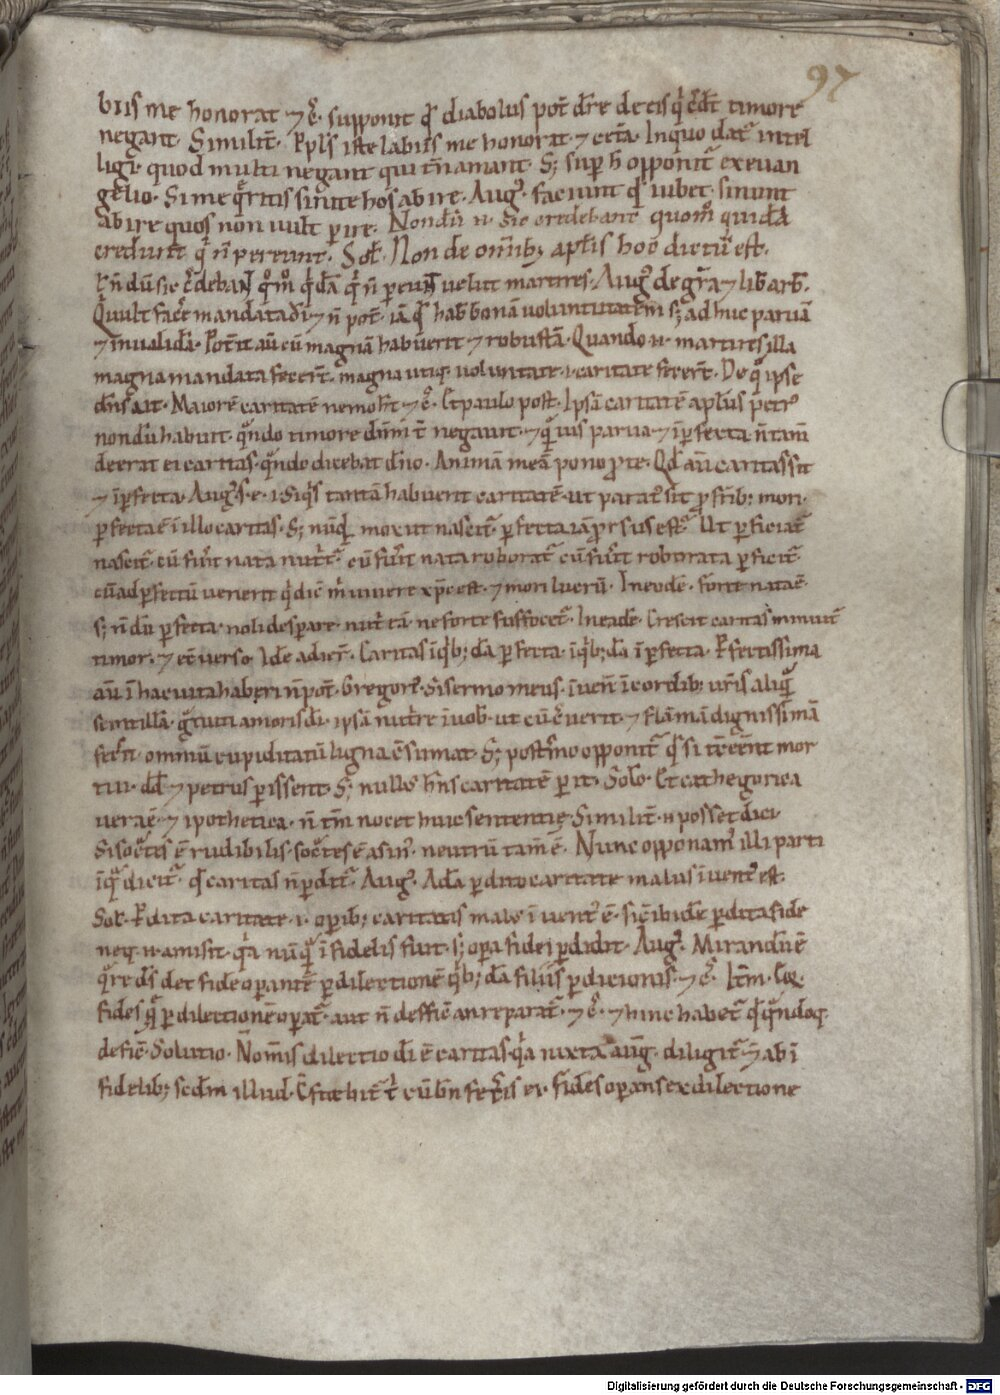 97
biis me honorat ⁊ c̄. supponit qd̄ diabolus pot̄ dīre de eis q̇ c̄dt̄ timore
negant. Similit̄. Ppl̄s iste labiis me honorat ⁊ cet̄a. Inquo dat̄ intel
ligi. quod multi negant qui tn̄ amant. S; sup̄ h̄ opponit̄ ex euan
gelio. Si me q̄ritis sinite hos abire. Aug᷒. faciunt qd̄ iubet. sinunt
abire quos non uult ꝑire. Nondū n̄ sic credebant quom̊ quidā
credunt q̇ n̄ pereunt. Sol̄. Non de om̄ib; apl̄is hoc dictū est.
velut martires. Aug᷒ de gr̄a ⁊ lib̄ arb̄.
Qui uult fac̄e mandata dī ⁊ n̄ pot̄. iā qd̄ hab̄ bonā uoluntatem s; adhuc paruā
⁊ inualidā. Pot̄it aū cū magnā habuerit ⁊ robustā. Quando n̄ martires illa
magna mandata fecer̄t. magna utiq; uoluntate .i. caritate fecer̄t. De q̄ ipse
dn̄s ait. Maiorē caritatē nemo h̄t ⁊ c̄. Et paulo post. Ipsā caritatē apl̄us petr᷒
nondū habuit. q̄ndo timore dnm̄ t̄ negauit. ⁊ q̄muis parua ⁊ īꝑfecta n̄ tam̄
deerat ei caritas. q̄ndo dicebat dn̄o. Animā meā pono ꝓ te. Qd̄ aū caritas sit
⁊ īꝑfecta. Aug᷒ s. e. i. Siq̇s tantā habuerit caritatē. ut parat᷒ sit ꝓ fr̄ib; mori.
ꝑfecta ē ī illo caritas. S; nūqd̄ mox ut nascit̄ ꝑfecta iā ꝓrsus est? Ut ꝑficiat̄
nascit̄. cū fuīt nata nut̄t̄. cū fuīt nata roborat̄ cū fuīt roborata ꝑficit̄
cū ad ꝑfectū uenerit q̇d dic̄ m̄ uiuere xp̄c est. ⁊ mori lucrū. In eodē. forte nata ē.
s; n̄dū ꝑfecta. noli desperare. nut̄ tā. ne forte suffocet̄. In eodē. Crescit caritas minuit᷒
timor. ⁊ ec̄uerso. Idē ad ier̄. Caritas īq̇b;dā ꝑfecta. īq̇b;dā īꝑfecta. Ꝑfectissima
aū ī hac uita haberi n̄ pot̄. Gregor᷒. Si sermo meus. īuen̄ ī cordib; ur̄is aliq̄
scintillā. gr̄tuiti amoris dī. ipsā nut̄re īuob̄. ut cū c̄uerit. ⁊ flāmā dignissimā
fec̄it. omniū cupiditatū ligna c̄sumat. S; postr̄mo opponit̄ qd̄ si
tui. dd̄ ⁊ petrus ꝑissent. S; null᷒ hn̄s caritatē ꝑit. Solō. Et cathegorica
uera ē. ⁊ ipothetica. n̄ tm̄ nocet huic sententię. Similit̄ n̄ posset dici.
Si soc̄tes ē rudibilis. soc̄tes ē asin᷒. neutrū tam̄ ē. Nunc opponam᷒ illi parti
īq̄ dicit̄. qd̄ caritas n̄ ꝑdit̄. Aug᷒. Adā ꝑdito caritate malus īuent᷒ est.
Sol̄. Ꝑdita caritate .i. opib; caritatis mal᷒ īuent᷒ ē. sic̄ ibidē ꝑdita fide
neq; n̄ amisit. q̇a nūq̄ īfidelis fuit. s; opera fidei ꝑdidit. Aug᷒. Mirandū ē
q̄re ds̄ det fidē oꝑantē ꝑ dilectionē q̇b;dā filiis ꝑdicionis. ⁊ c̄. Itm̄.
fides q̄ ꝑ dilectionē oꝑat̄. aut n̄ deffic̄ an reparat̄. ⁊ c̄. ⁊ hinc habet̄ qd̄ q̄ndoq;
defic̄. Solutio. Nom̄is dilectio dī ē caritas. q̇a iuxta aug̓. diligit̄ ⁊ ab ī
fidelib; scd̄m illud. Cf̄itebit̄ t̄ cū bn̄ fec̄is ei. fides operans ex dilectione
Digitalisierung gefördert durch die Deutsche Forschungsgemeinschaft - DFG